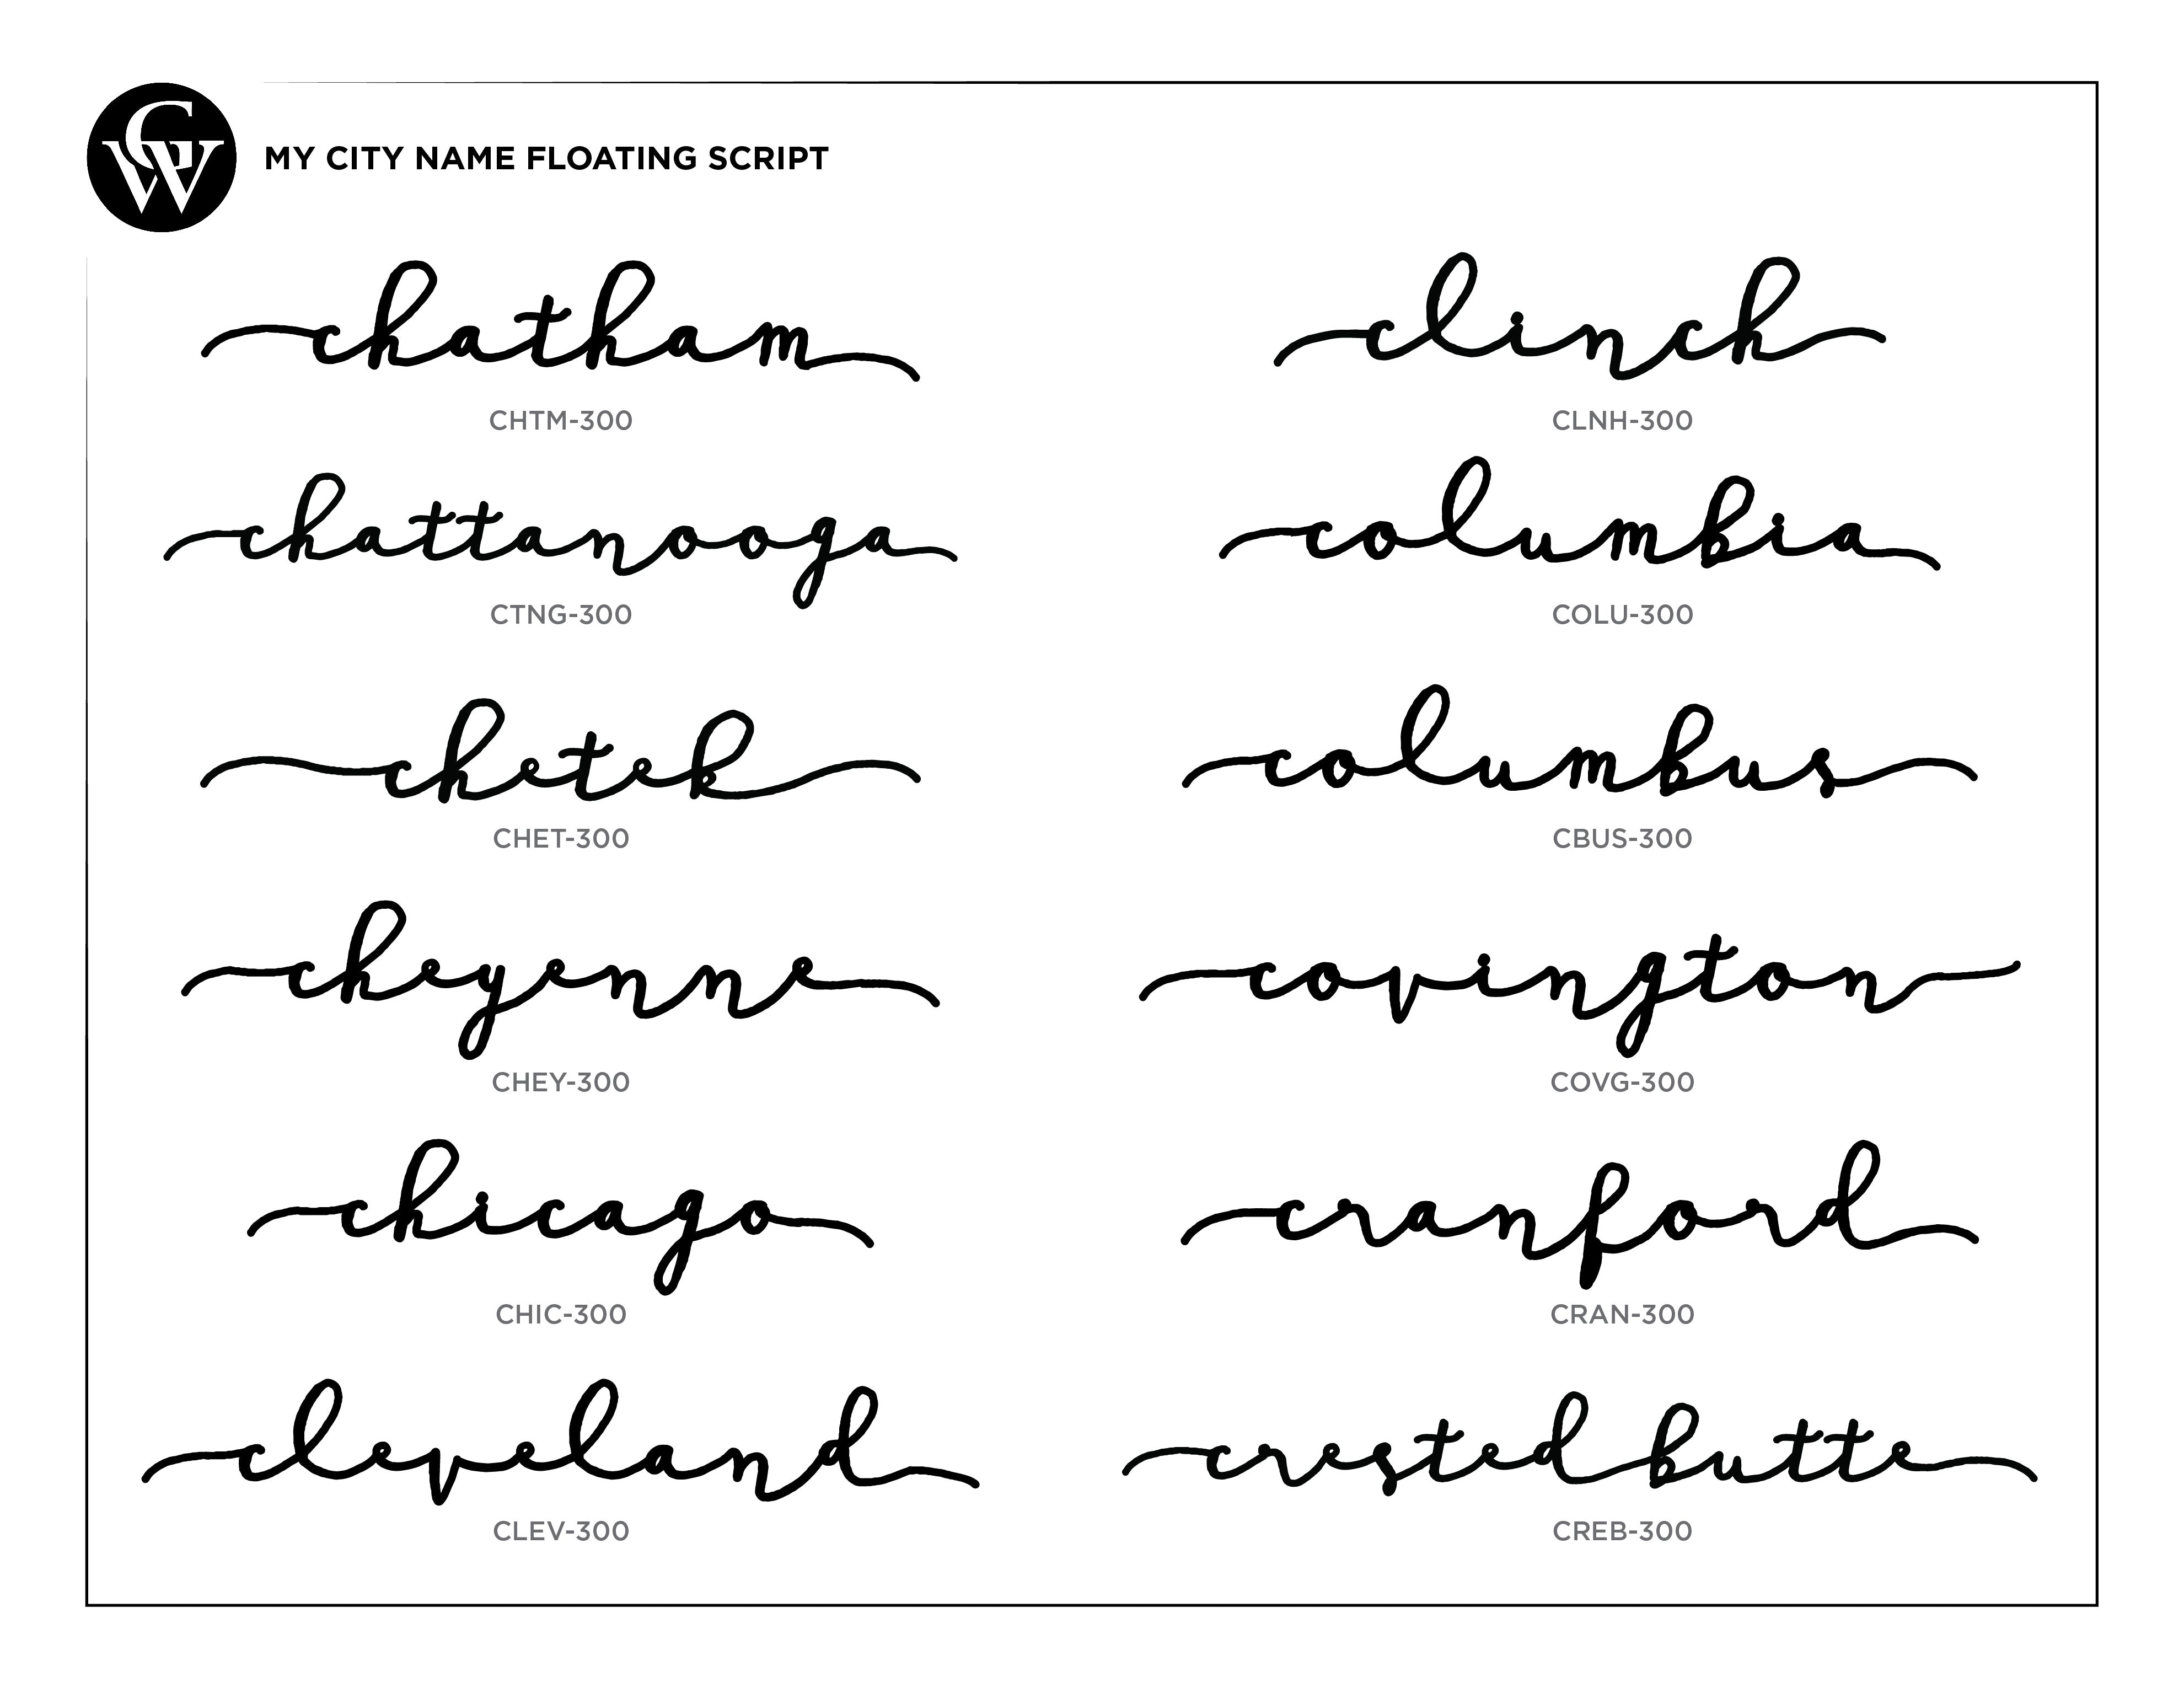 CW
MY CITY NAME FLOATING SCRIPT
chatham
CHTM-300
chattanooga
CTNG-300
chetek
CHET-300
cheyenne
CHEY-300
chicago
CHIC-300
cleveland
CLEV-300
clinch
CLNH-300
columbia
COLU-300
columbus
CBUS-300
covington
COVG-300
cranford
CRAN-300
crested butte
CREB-300